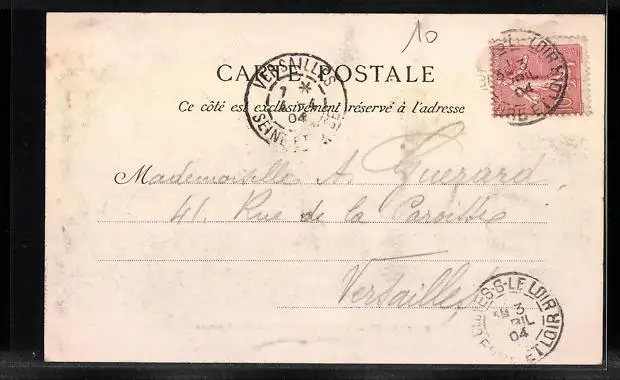 10
CARTE POSTALE
Ce côté est exclusivement réservé à l'adresse
VERSAILLES
7
04
SEINE ET OISE
LOIR
3
04
EURE ET LOIR
10
Mademoiselle A. Guerard,
41, Rue de la Paroisse
Versailles
S-LE LOIR
3
AVRIL
04
EURE ET LOIR